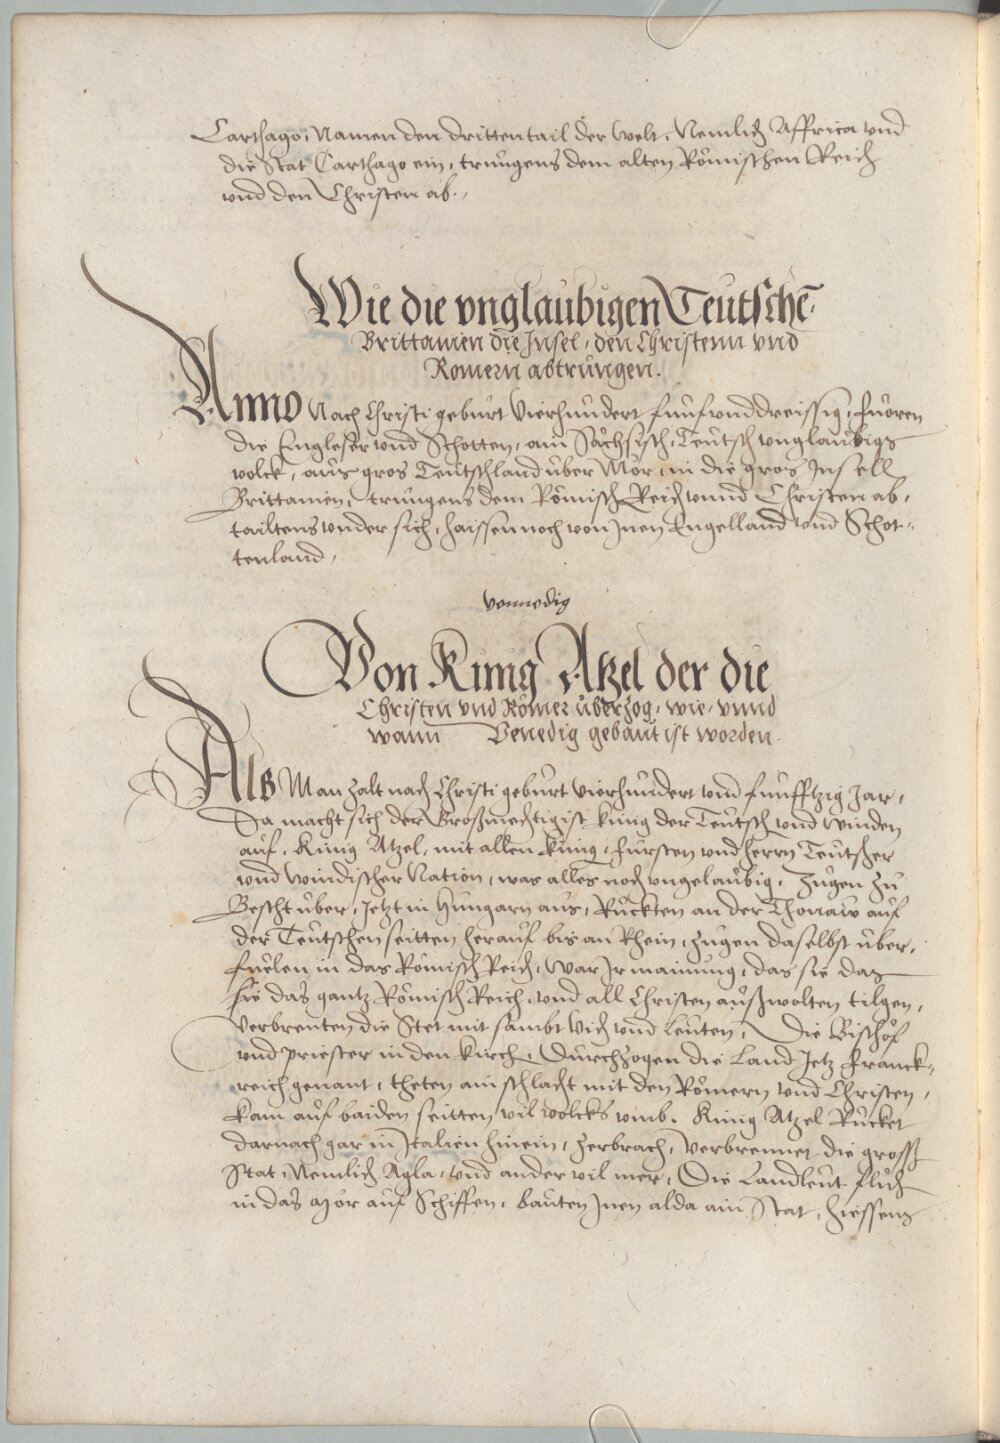 Carthago, Namen den dritten tail der welt, Nemlich Affrica vnd
die Stat Carthago ein, trungens dem alten Römischen Reich
vnd den Christen ab.
Wie die vnglaubigen Teutschē
Brittanien die Insel, den Christenn vnd
Romern abtrungen.
Anno Nach Christi geburt Vierhundert funfunddreissig, fuoren
die Engleser vnd Schotten, ain Sächsisch, Teutsch vnglaubigs
volck, aus gros Teutschland über Mör, in die gros Insell
Brittanien, trungens dem Römisch Reich vnnd Christen ab,
tailtens vnder sich, haissen noch von Jnen Engelland vnd Schot-
tenland,
Von Kunig Atzel der die
Christen vnd Römer überzog, wie, vnnd
wann Venedig gebaut ist worden.
Als Man zalt nach Christi geburt Vierhundert vnd funfftzig Jar,
Da macht sich der Großmechtigist kung der Teutsch vnd Winden
auf, Kunig Atzel, mit allen kunig, fursten vnd herrn Teutscher
vnd windischer Nation, was alles noch vngelaubig, Zugen zu
Bescht über, Jetzt in Hungarn aus, Ruckten an der Thonaw auf
der Teutschen seitten herauf bis an Rhein, zugen daselbst über,
fuelen in das Römisch Reich, War Jr mainung, das sie das
sie das gantz Römisch Reich, vnd all Christen außwolten tilgen,
Verbrenten die Stet mit sambt Vich vnd leuten, Die Bischof
vnd Priester in den kirch, Durchzogen die Land Jetz Franck-
reich genant, theten ain schlacht mit den Römern vnd Christen,
kam auf baiden seitten vil volcks vmb. Kunig Atzel Rucket
darnach gar in Italien hinein, Zerbrach, Verbrennet die gross
Stat, Nemlich Agla, vnd ander vil mer, Die Landleut fluch
in das Mör auf Schiffen, bauten Jnen alda ain Stat, hiessens